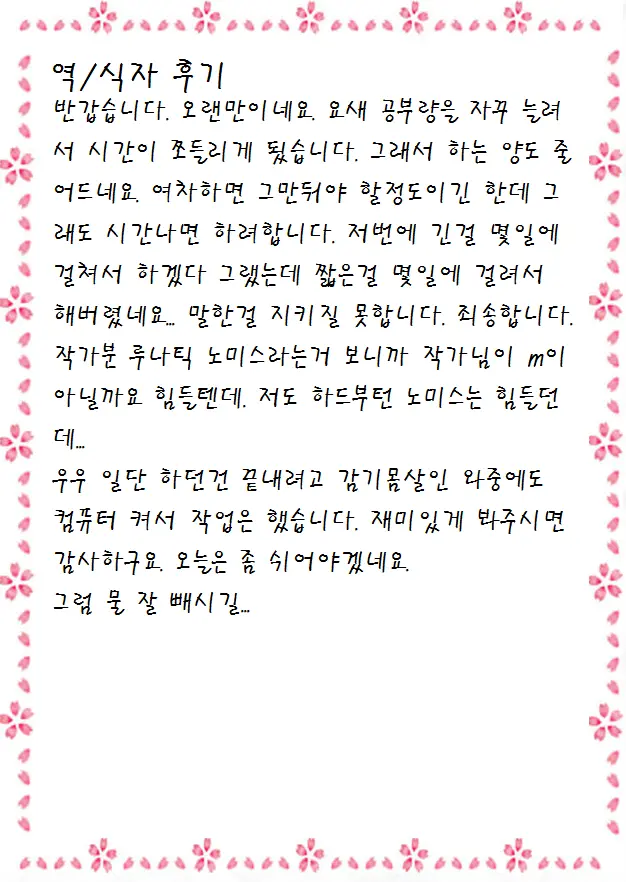 역/식자 후기
반갑습니다. 오랜만이네요. 요새 공부량을 자꾸 늘려
서 시간이 쪼들리게 됬습니다. 그래서 하는 양도 줄
어드네요. 여차하면 그만둬야 할정도이긴 한데 그
래도 시간나면 하려합니다. 저번에 긴걸 몇일에
걸쳐서 하겠다 그랬는데 짧은걸 몇일에 걸려서
해버렸네요... 말한걸 지키질 못합니다. 죄송합니다.
작가분 루나틱 노미스라는거 보니까 작가님이 m이
아닐까요 힘들텐데. 저도 하드부턴 노미스는 힘들던
데...
우우 일단 하던건 끝내려고 감기몸살인 와중에도
컴퓨터 켜서 작업은 했습니다. 재미있게 봐주시면
감사하구요. 오늘은 좀 쉬어야겠네요.
그럼 물 잘 빼시길...